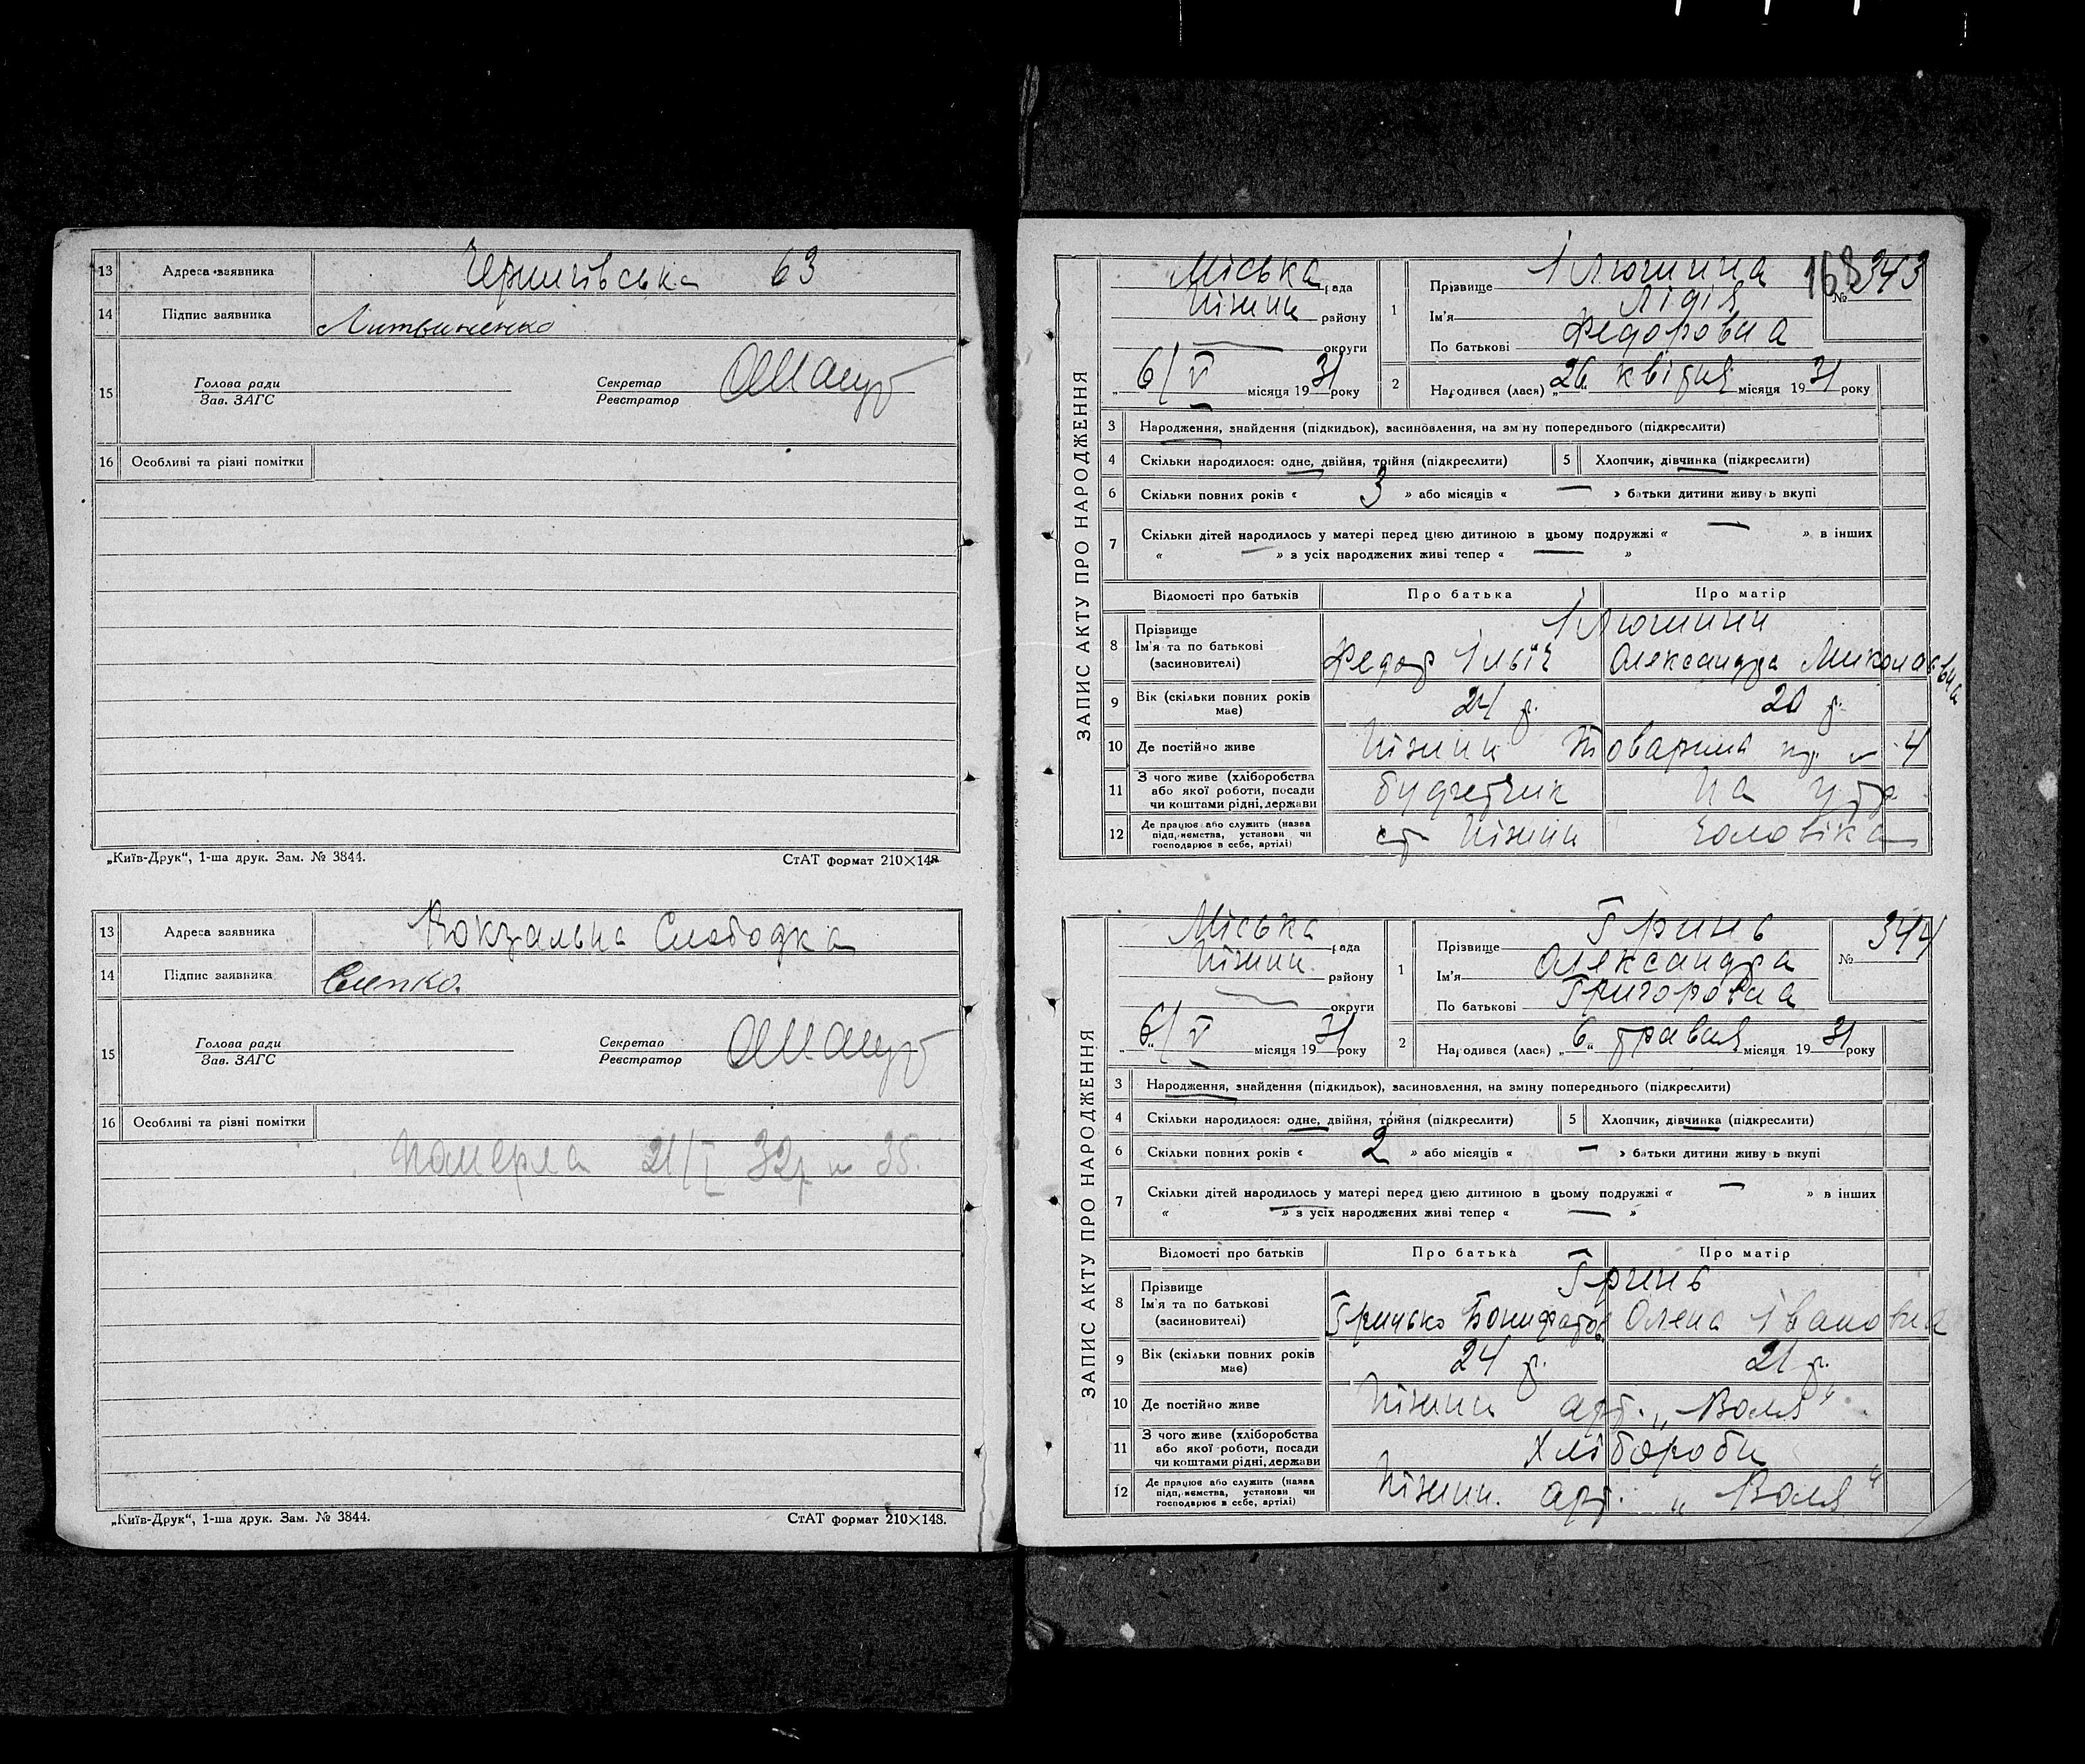 13 Адреса заявника Чернигівська 63
14 Підпис заявника Литвиненко
15 Голова ради Секретар
Зав. ЗАГС Реєстратор
16 Особливі та різні помітки
„Київ-Друк“, 1-ша друк. Зам. № 3844. СтАТ формат 210×148
13 Адреса заявника Вокзальна Слободка
14 Підпис заявника
15 Голова ради Секретар
Зав. ЗАГС Реєстратор
16 Особливі та різні помітки
Померла 21/I 32р № 35.
„Київ-Друк“, 1-ша друк. Зам. № 3844. СтАТ формат 210×148.
ЗАПИС АКТУ ПРО НАРОДЖЕННЯ
Міська рада
Ніжин району
округи
„6/V місяця 1931 року
168 № 343
1 Прізвище Ілюшина
Ім'я Лідія
По батькові Федоровна
2 Народився (лася) „26“ квітня місяця 1931 року
3 Народження, знайдення (підкидьок), засиновлення, на зміну попереднього (підкреслити)
4 Скільки народилося: одне, двійня, трійня (підкреслити) 5 Хлопчик, дівчинка (підкреслити)
6 Скільки повних років « 3 » або місяців « — » батьки дитини живуть вкупі
7 Скільки дітей народилось у матері перед цією дитиною в цьому подружжі « — » в інших
« — » з усіх народжених живі тепер « — »
Відомості про батьків Про батька Про матір
8 Прізвище Ілюшини
Ім'я та по батькові Федор Ільїч Олександра Миколаєвна
(засиновителі)
9 Вік (скільки повних років має) 24 р. 20 р.
10 Де постійно живе Ніжин Товарина № 4
11 З чого живе (хліборобства або якої роботи, посади чи коштами рідні, держави буджетчик На утр
12 Де працює або служить (назва підприємства, установи чи господарює в себе, артілі) ст Ніжин чоловіка
ЗАПИС АКТУ ПРО НАРОДЖЕННЯ
Міська рада
Ніжин району
округи
„6“/V місяця 1931 року
№ 344
1 Прізвище Гринь
Ім'я Олександра
По батькові Григоровна
2 Народився (лася) „6“ травня місяця 1931 року
3 Народження, знайдення (підкидьок), засиновлення, на зміну попереднього (підкреслити)
4 Скільки народилося: одне, двійня, трійня (підкреслити) 5 Хлопчик, дівчинка (підкреслити)
6 Скільки повних років « 2 » або місяців « — » батьки дитини живуть вкупі
7 Скільки дітей народилось у матері перед цією дитиною в цьому подружжі « — » в інших
« — » з усіх народжених живі тепер « — »
Відомості про батьків Про батька Про матір
8 Прізвище Гринь
Ім'я та по батькові Грицько Бонифатов Олена Івановна
(засиновителі)
9 Вік (скільки повних років має) 24 р. 21 р.
10 Де постійно живе Ніжин арт. „Воля“
11 З чого живе (хліборобства або якої роботи, посади чи коштами рідні, держави Хлібороби
12 Де працює або служить (назва підприємства, установи чи господарює в себе, артілі) Ніжин. арт. „Воля“